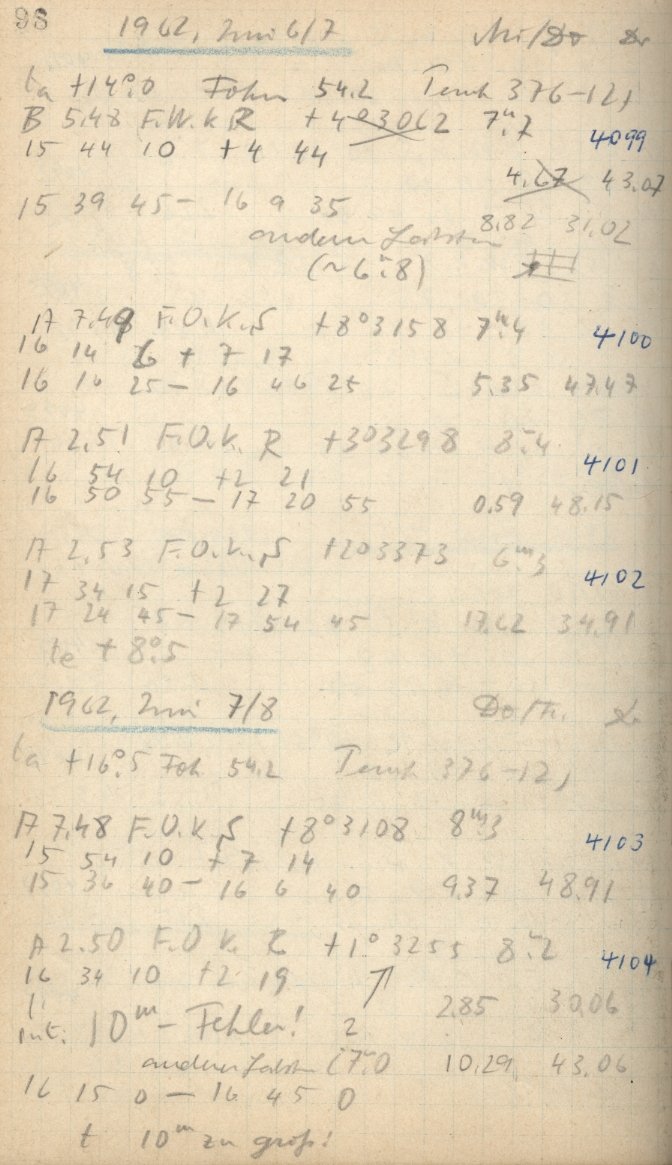 98
1962, Juni 6/7 Mi/Do
ta +14°.0 Fokus 54.2 Temp 376-12)
B 5.48 F.W.k R +4°3062 7m.7 4099
15 44 10 +4 44
4.67 43.07
15 39 45 - 16 9 35 8.82 31.02
anderer
(~6m.8)
A 7.49 F.O.K.S +8°3158 7m.4 4100
16 14 6 +7 17
16 16 25 - 16 46 25 5.35 47.47
A 2.51 F.O.K. R +3°3298 8m.4 4101
16 54 10 +2 21
16 50 55 - 17 20 55 0.59 48.15
A 2.53 F.O.K.S +2°3373 6m.3 4102
17 34 15 +2 27
17 24 45 - 17 54 45 17.62 34.91
te +8°.5
1962, Juni 7/8 Do/Fr.
ta +16°.5 Fok 54.2 Temp 376-12)
A 7.48 F.O.K.S +8°3108 8m.3 4103
15 54 10 +7 14
15 36 40 - 16 6 40 9.37 48.91
A 2.50 F.O.K. R +1°3255 8m.2 4104
16 34 10 +2 19
2.85 30.06
10m - Fehler! 2
anderer (7m.0 10.29 43.06
16 15 0 - 16 45 0
t 10m zu groß!